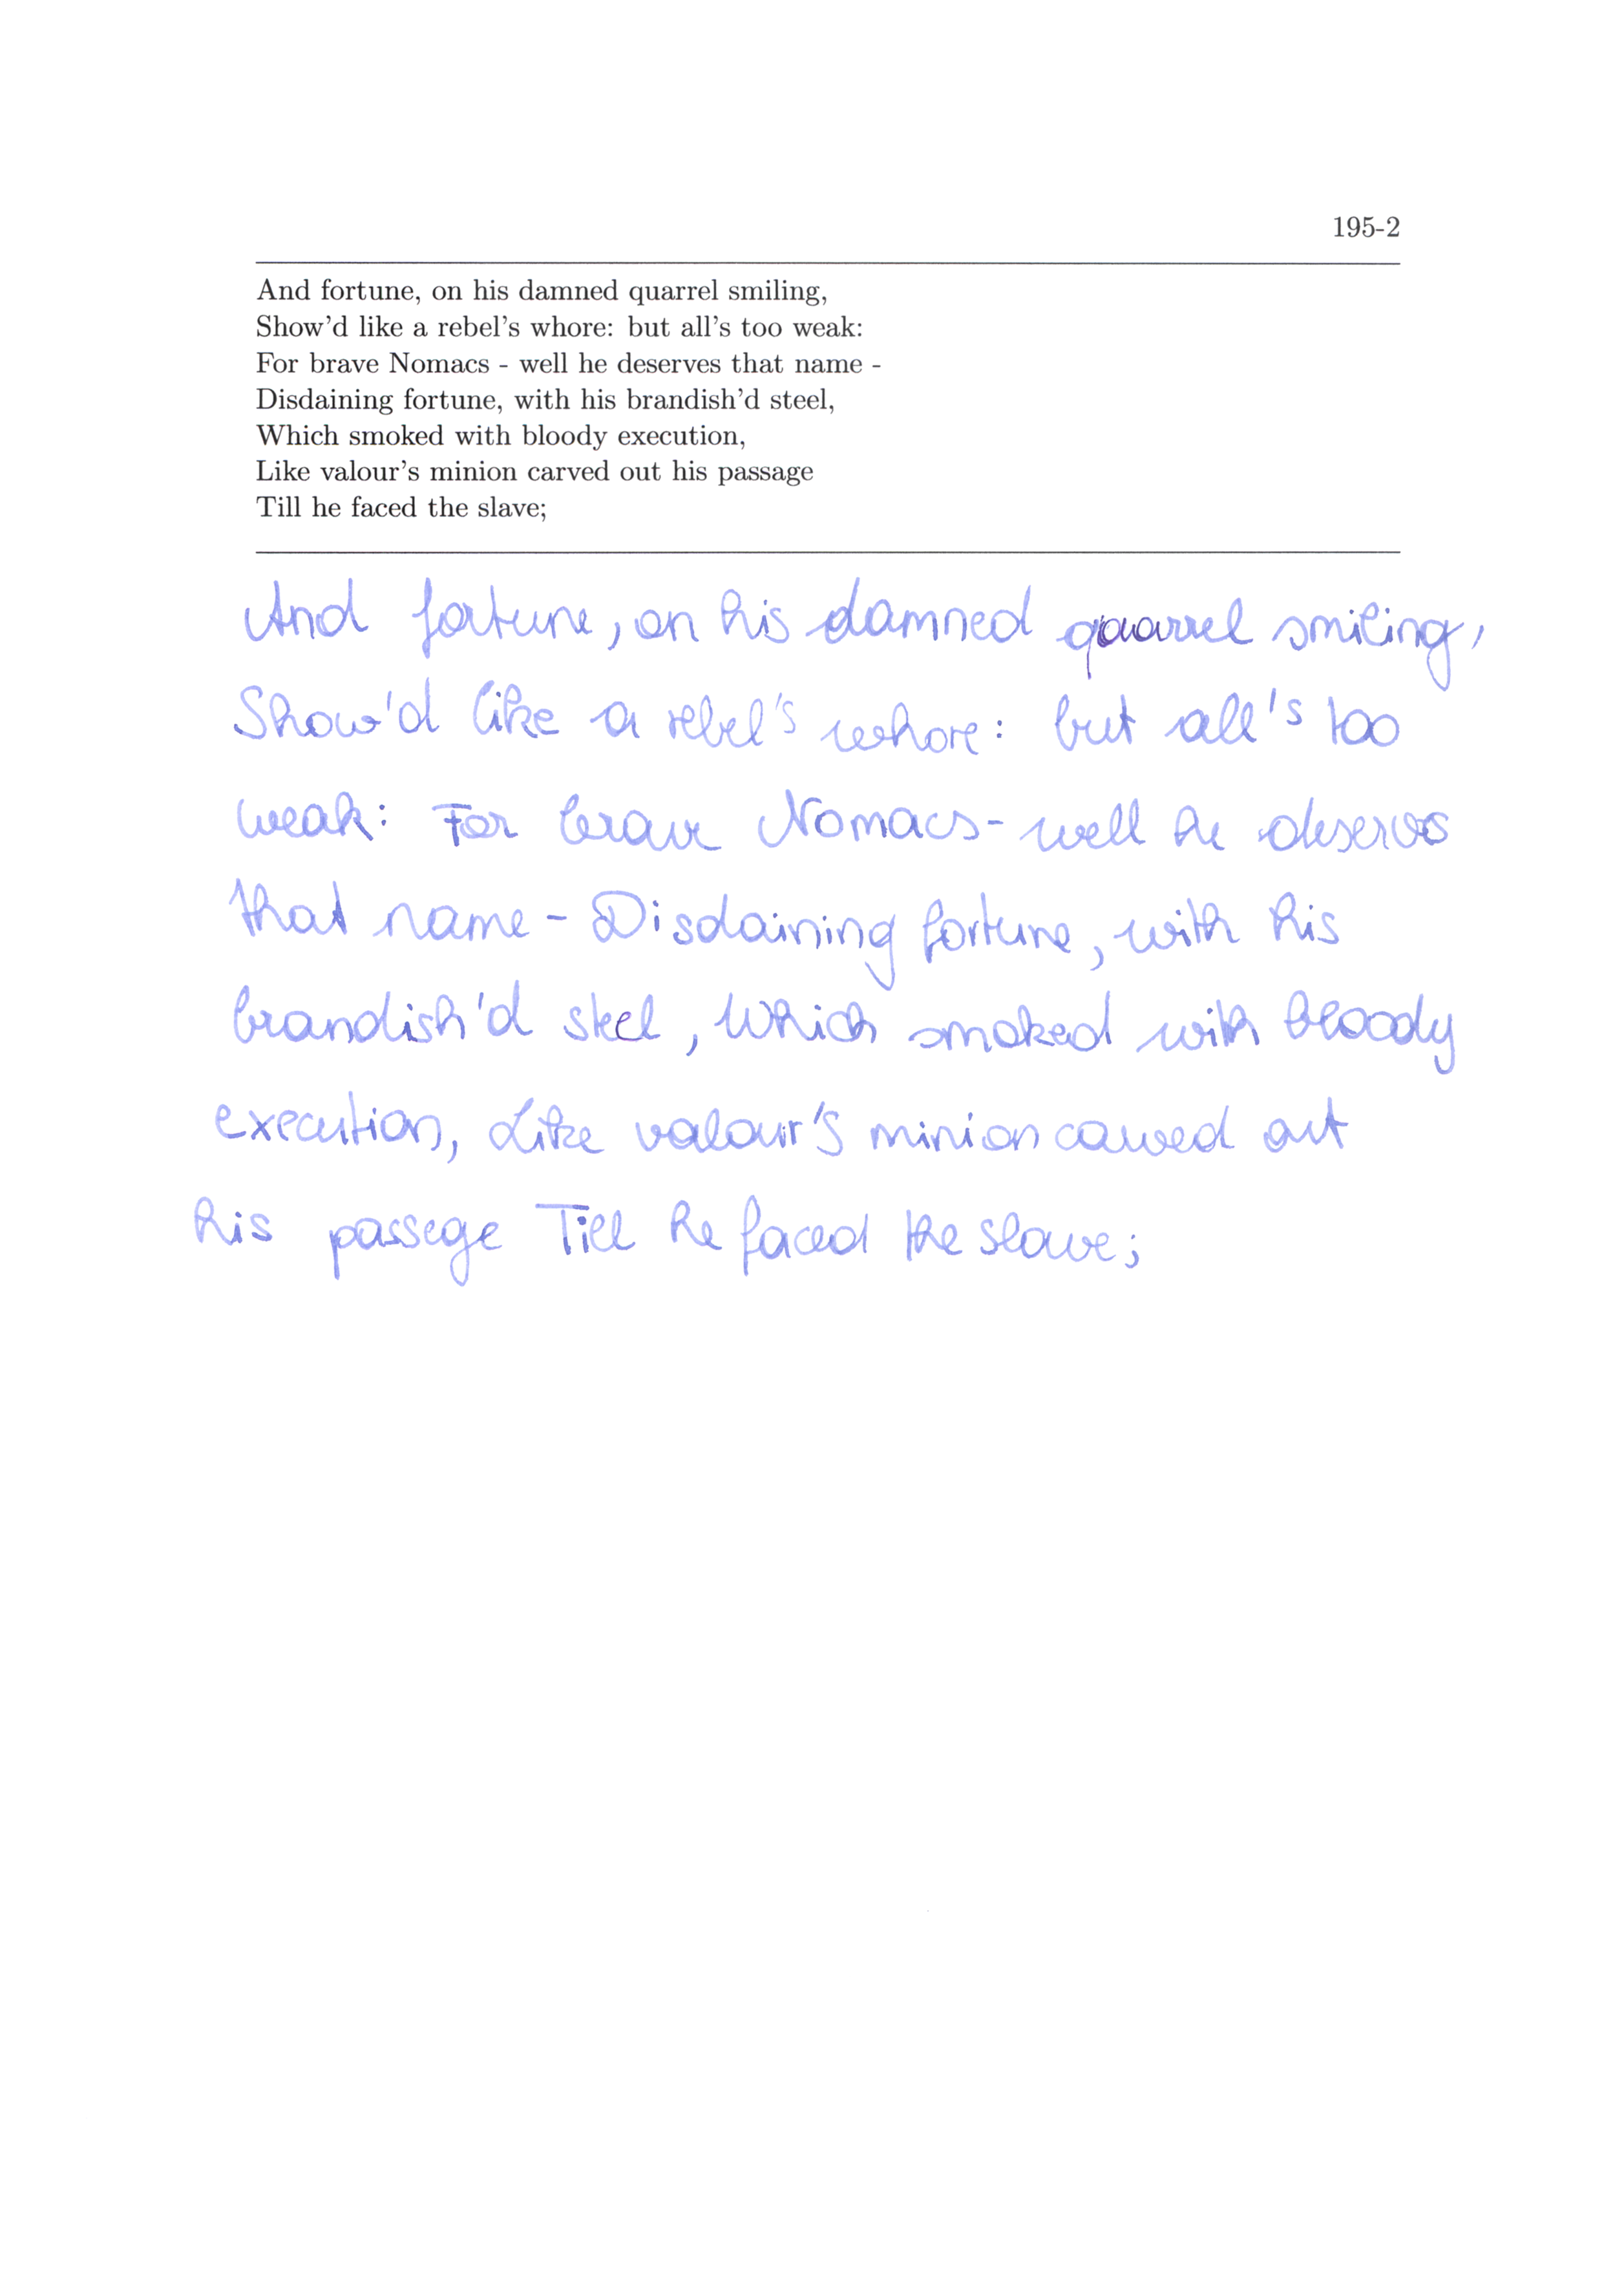 195-2
And fortune, on his damned quarrel smiling,
Show'd like a rebel's whore: but all's too weak:
For brave Nomacs - well he deserves that name -
Disdaining fortune, with his brandish'd steel,
Which smoked with bloody execution,
Like valour's minion carved out his passage
Till he faced the slave;
And fortune, on his damned quarrel smiling,
Show'd like a rebel's whore: but all's too
weak: For brave Nomacs - well he deserves
that name - Disdaining fortune, with his
brandish'd steel, Which smoked with bloody
execution, Like valour's minion carved out
his passege Till he faced the slave;